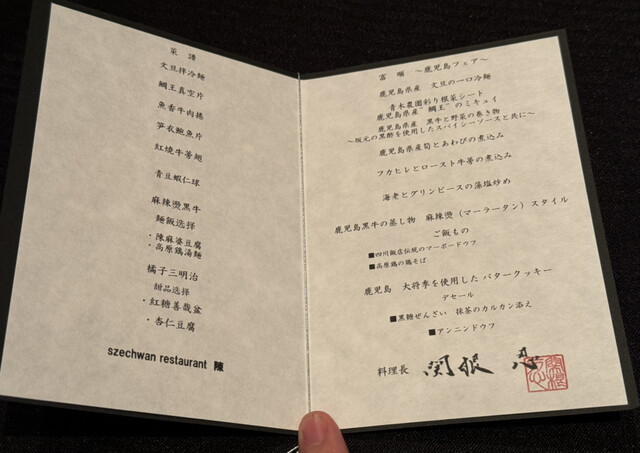 菜譜
文旦拌冷麺
鯛王真空片
魚香牛肉捲
笋衣鮑魚片
紅燒牛蒡翅
青豆蝦仁球
麻辣燙黒牛
麺飯选择
・陳麻婆豆腐
・高原鶏湯麺
橘子三明治
甜品选择
・紅糖善哉盆
・杏仁豆腐
szechwan restaurant 陳
富嘱 〜鹿児島フェア〜
鹿児島県産 文旦の一口冷麺
青木農園彩り根菜シート
鹿児島県産"鯛王"のミキュイ
鹿児島県産 黒牛と野菜の巻き物
〜坂元の黒酢を使用したスパイシーソースと共に〜
鹿児島県産筍とあわびの煮込み
フカヒレとロースト牛蒡の煮込み
海老とグリンピースの藻塩炒め
鹿児島黒牛の蒸し物 麻辣燙（マーラータン）スタイル
ご飯もの
■四川飯店伝統のマーボードウフ
■高原鶏の鶏そば
鹿児島 大将季を使用したバタークッキー
デセール
■黒糖ぜんざい 抹茶のカルカン添え
■アンニンドウフ
料理長 関根